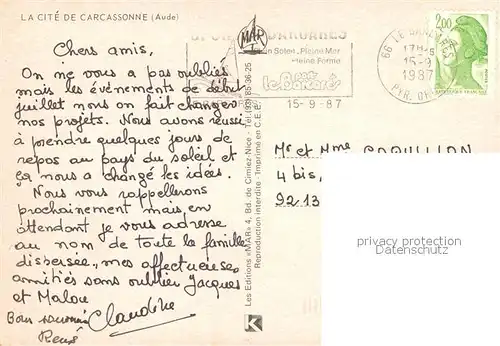 LA CITÉ DE CARCASSONNE (Aude)
Chers amis,
On ne vous a pas oubliés
mais les événements de début
juillet nous on fait changer
nos projets. Nous avons réussi
à prendre quelques jours de
repos au pays du soleil et
ça nous a changé les idées.
Nous vous rappellerons
prochainement mais en
attendant je vous adresse
au nom de toute la famille
dispersée, mes affectueuses
amitiés sans oublier Jacques
et Malou
Claudine
Bons souvenirs
René
Les Editions «MAR» 4, Bd. de Cimiez-Nice - Tel. (93) 85-36-25
Reproduction interdite - Imprimé en C.E.E.
MAR
Plein Soleil, Pleine Mer
Pleine Forme
port
Le Barcarès
15-9-87
66 LE BARCARES
17H45
15-9
1987
PYR. OR.
2,00
Mr et Mme
4 bis,
9213
privacy protection
Datenschutz
K